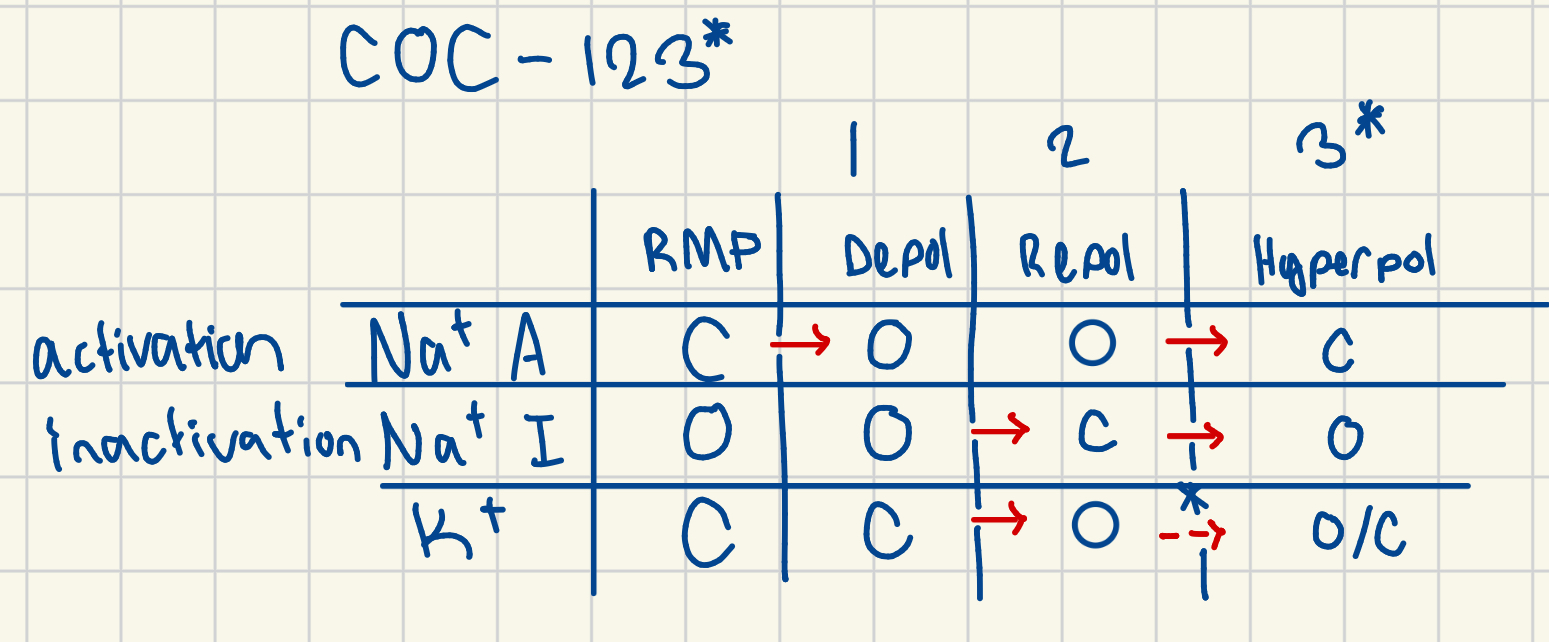 COC - 123*
1 2 3*
RMP Depol Repol Hyperpol
activation Na+ A C → O O → C
inactivation Na+ I O O → C → O
K+ C C → O * --→ O/C